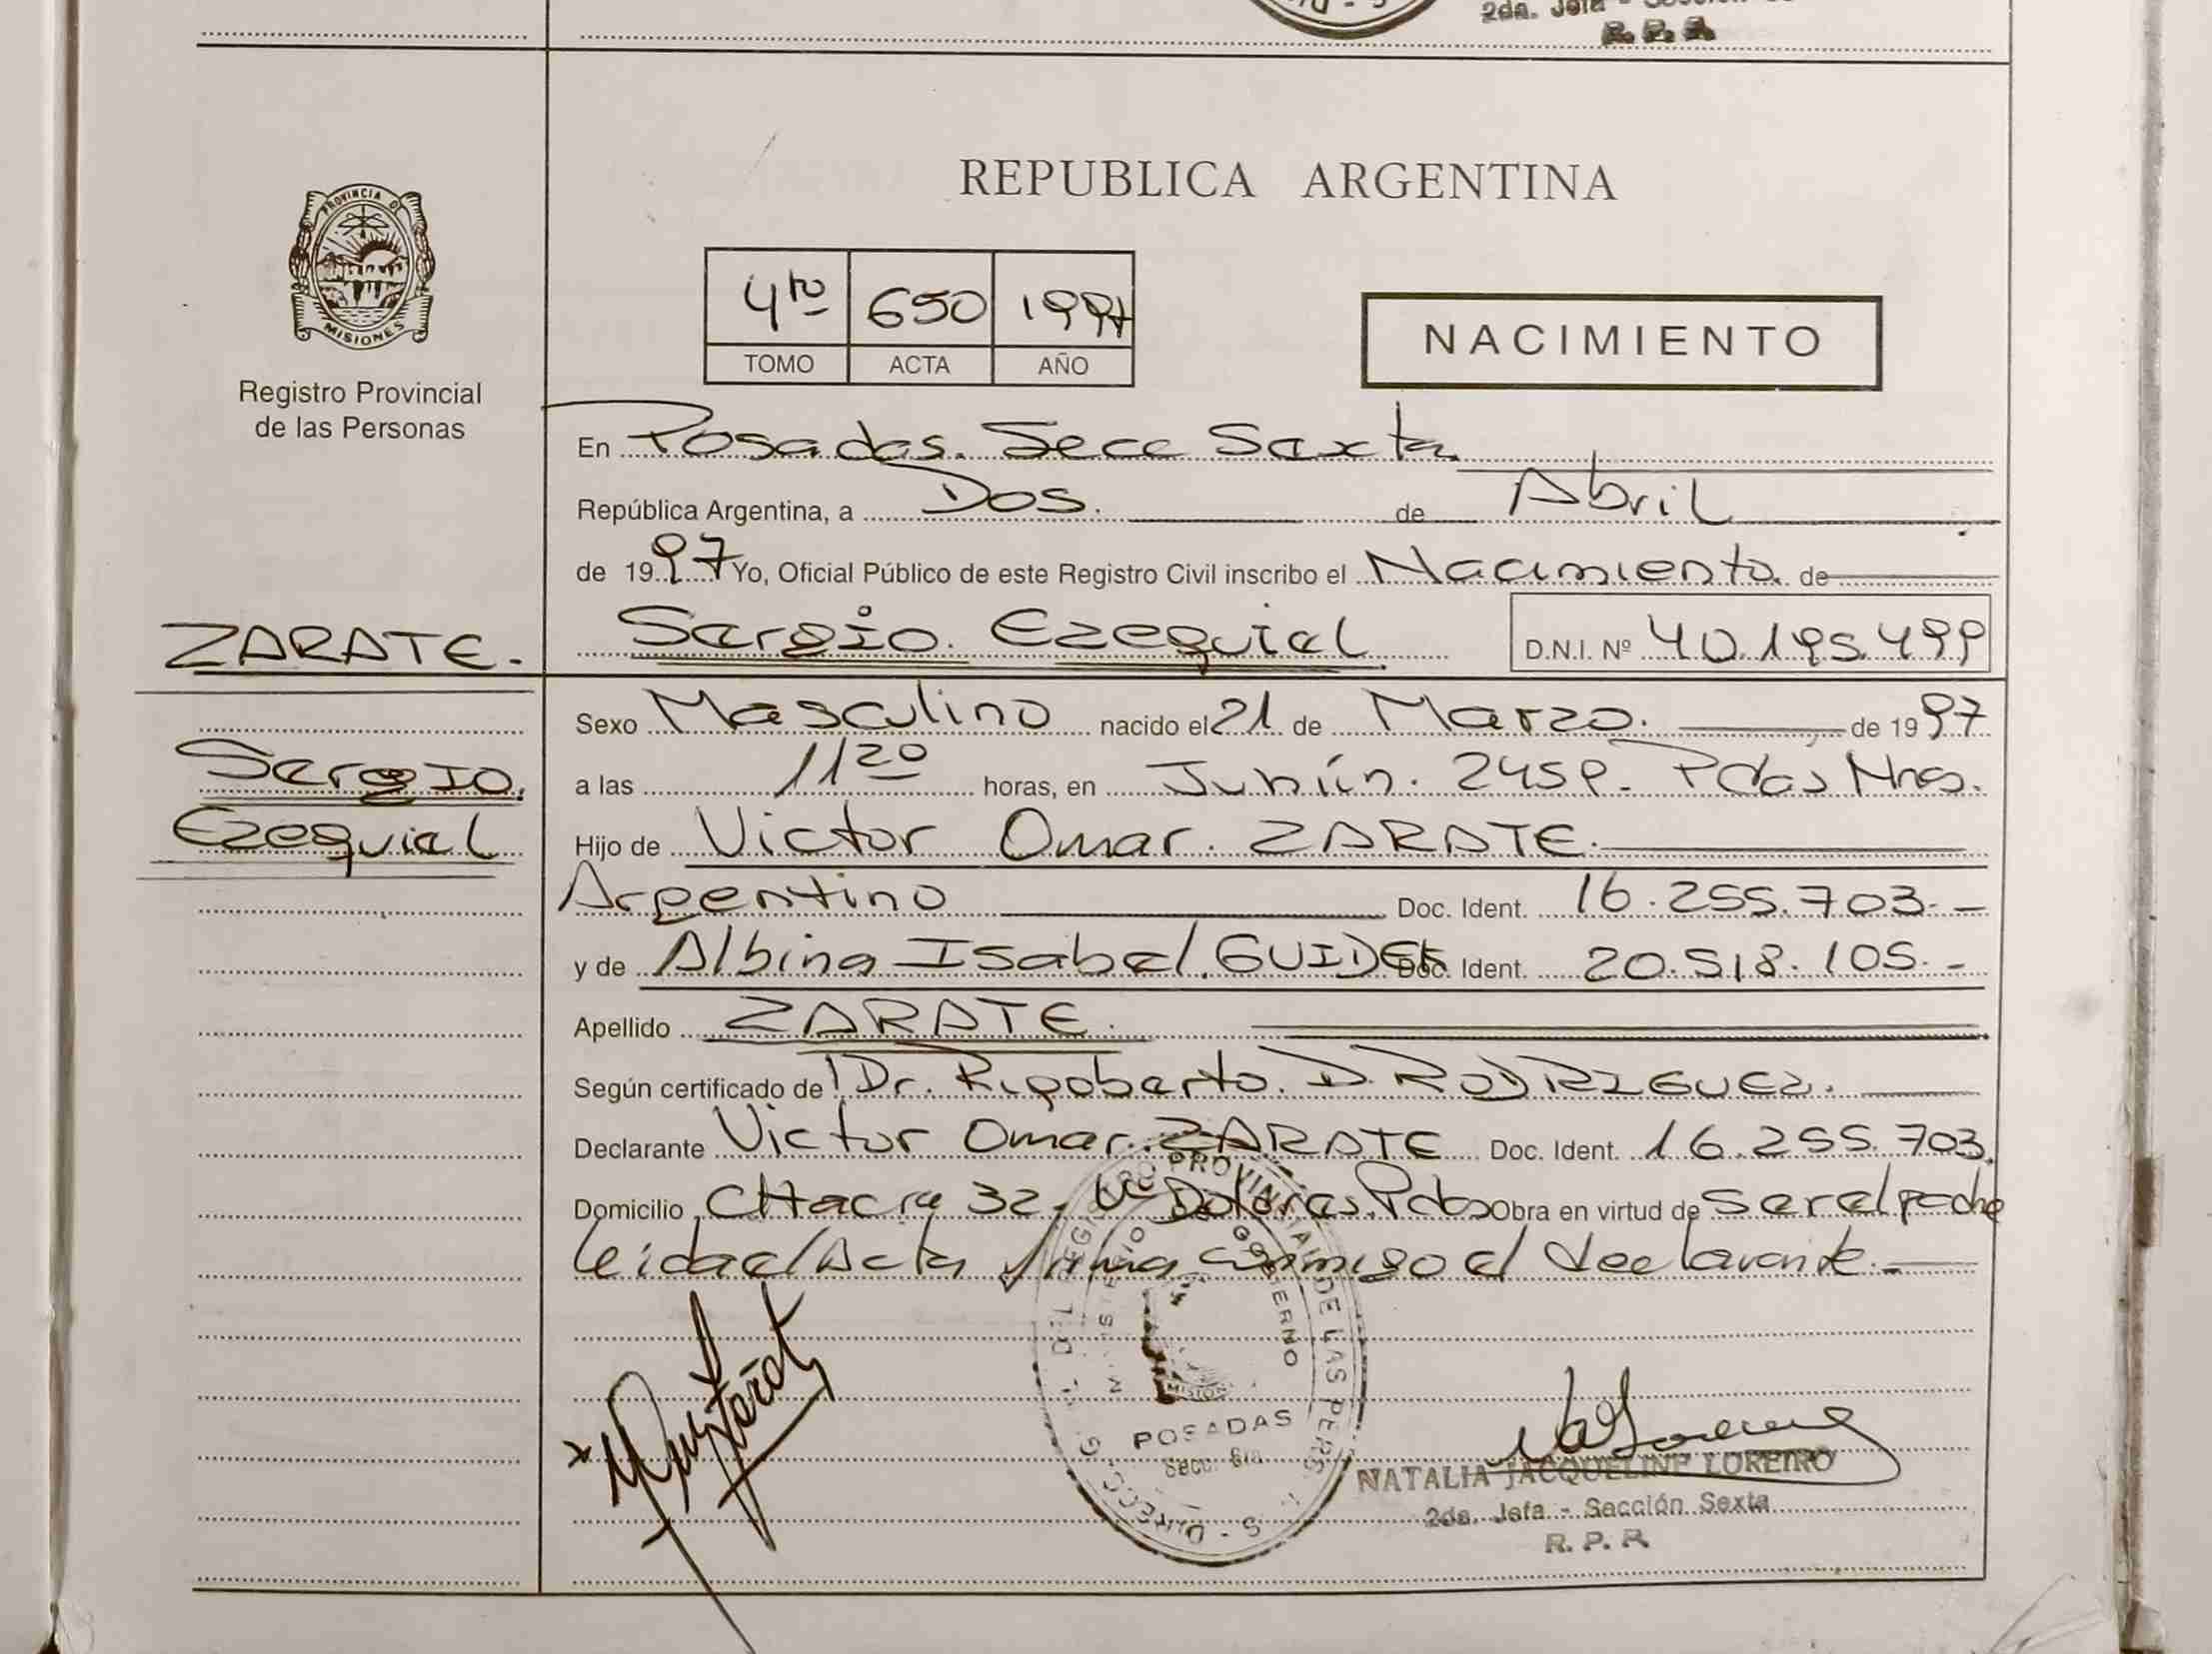 2da. Jefa - Sección
R. P. R
PROVINCIA D
MISIONES
Registro Provincial
de las Personas
REPUBLICA ARGENTINA
4to 650 1997
TOMO ACTA AÑO
NACIMIENTO
En Posadas. Secc Sexta
República Argentina, a Dos. de Abril
de 1997 Yo, Oficial Público de este Registro Civil inscribo el Nacimiento. de
ZARATE. Sergio. Ezequiel D.N.I. Nº 40.195.499
Sexo Masculino nacido el 21 de Marzo. de 1997
Sergio. a las 11 20 horas, en Junín. 2459. Pdas Mnes.
Ezequiel Hijo de Victor Omar. ZARATE.
Argentino Doc. Ident. 16.255.703.-
y de Albina Isabel. Doc. Ident. 20.518.105.-
Apellido ZARATE.
Según certificado de Dr. Rigoberto. D. RODRIGUEZ.
Declarante Victor Omar. ZARATE Doc. Ident. 16.255.703.
Domicilio CHacra 32. Va Dolores. Pdas Obra en virtud de ser el padre
leida el Acta firma conmigo el declarante.-
REGISTRO PROVINCIAL DE LAS PERS
MINISTERIO GOBIERNO
MISION
POSADAS
Secc. 6ta
NATALIA JACQUELINE LOREIRO
2da. Jefa - Sección Sexta
R. P. R